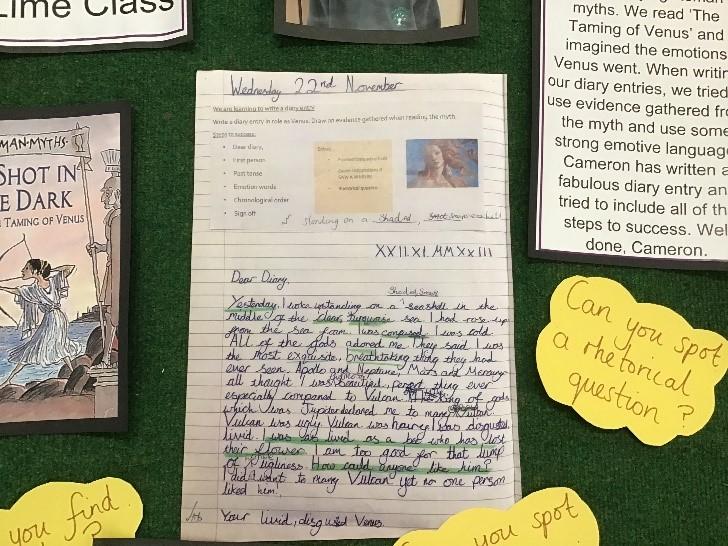 Lime Class
MAN-MYTHS
SHOT IN
E DARK
TAMING OF VENUS
Wednesday 22nd November
We are learning to write a diary entry
Write a diary entry in role as Venus. Draw on evidence gathered when reading the myth.
Steps to success:
Dear diary,
First person
Past tense
Emotion words
Chronological order
Sign off
standing on a Shaded,
XXII.XI.MMXXIII
Dear Diary,
Yesterday, I woke up standing on a seashell in the
middle of the clear, turquoise sea I had rose up
from the sea foam. I was confused. I was cold.
All of the gods adored me. They said I was
the most exquisite, breathtaking thing they had
ever seen. Apollo and Neptune, Mars and Mercury
all thought I was beautiful, perfect thing ever
especially compared to Vulcan king of gods
which was Jupiter declared me to marry Vulcan.
Vulcan was ugly Vulcan was hairy I was disgusted,
livid. I was as livid as a bee who has lost
their flower I am too good for that lump
of ugliness. How could anyone like him?
I didn't want to marry Vulcan yet no one person
liked him!
Your livid, disgusted Venus.
myths. We read 'The
Taming of Venus' and
imagined the emotions
Venus went. When writing
our diary entries, we tried
use evidence gathered from
the myth and use some
strong emotive language
Cameron has written a
fabulous diary entry an
tried to include all of th
steps to success. Well
done, Cameron.
Can you spot
a rhetorical
question?
you find
?
you spot